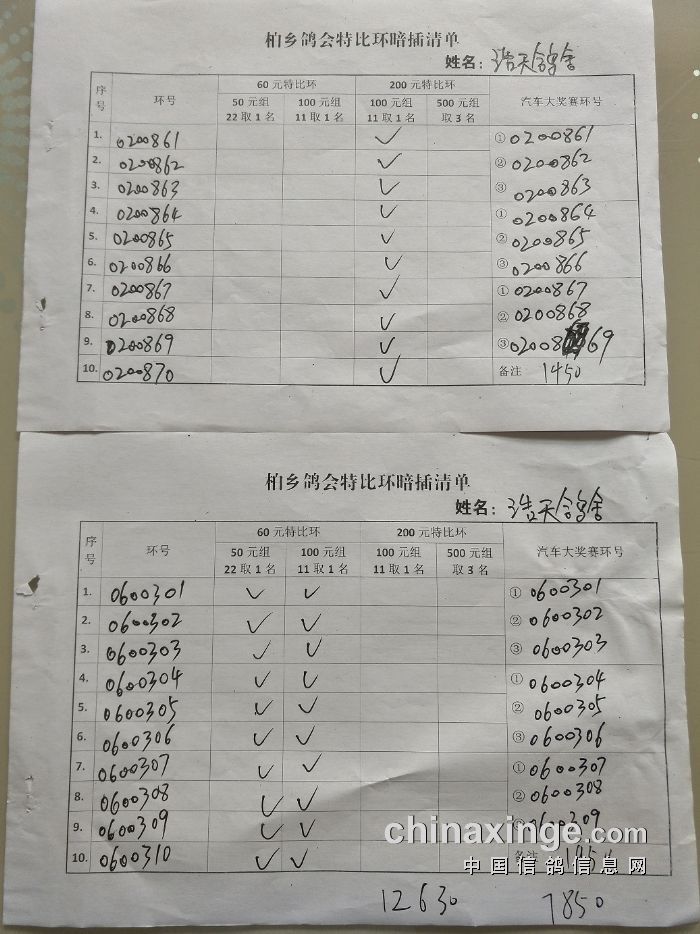 柏乡鸽会特比环暗插清单
姓名：浩天鸽舍
序号 环号 60元特比环 200元特比环 汽车大奖赛环号
50元组 22取1名 100元组 11取1名 100元组 11取1名 500元组 取3名
1. 0200861 ✓ ① 0200861
2. 0200862 ✓ ② 0200862
3. 0200863 ✓ ③ 0200863
4. 0200864 ✓ ① 0200864
5. 0200865 ✓ ② 0200865
6. 0200866 ✓ ③ 0200866
7. 0200867 ✓ ① 0200867
8. 0200868 ✓ ② 0200868
9. 0200869 ✓ ③ 0200869
10. 0200870 ✓ 备注 1450
柏乡鸽会特比环暗插清单
姓名：浩天鸽舍
序号 环号 60元特比环 200元特比环 汽车大奖赛环号
50元组 22取1名 100元组 11取1名 100元组 11取1名 500元组 取3名
1. 0600301 ✓ ✓ ① 0600301
2. 0600302 ✓ ✓ ② 0600302
3. 0600303 ✓ ✓ ③ 0600303
4. 0600304 ✓ ✓ ① 0600304
5. 0600305 ✓ ✓ ② 0600305
6. 0600306 ✓ ✓ ③ 0600306
7. 0600307 ✓ ✓ ① 0600307
8. 0600308 ✓ ✓ ② 0600308
9. 0600309 ✓ ✓ ③ 0600309
10. 0600310 ✓ ✓ 备注
chinaxinge.com
中国信鸽信息网
12630 7850